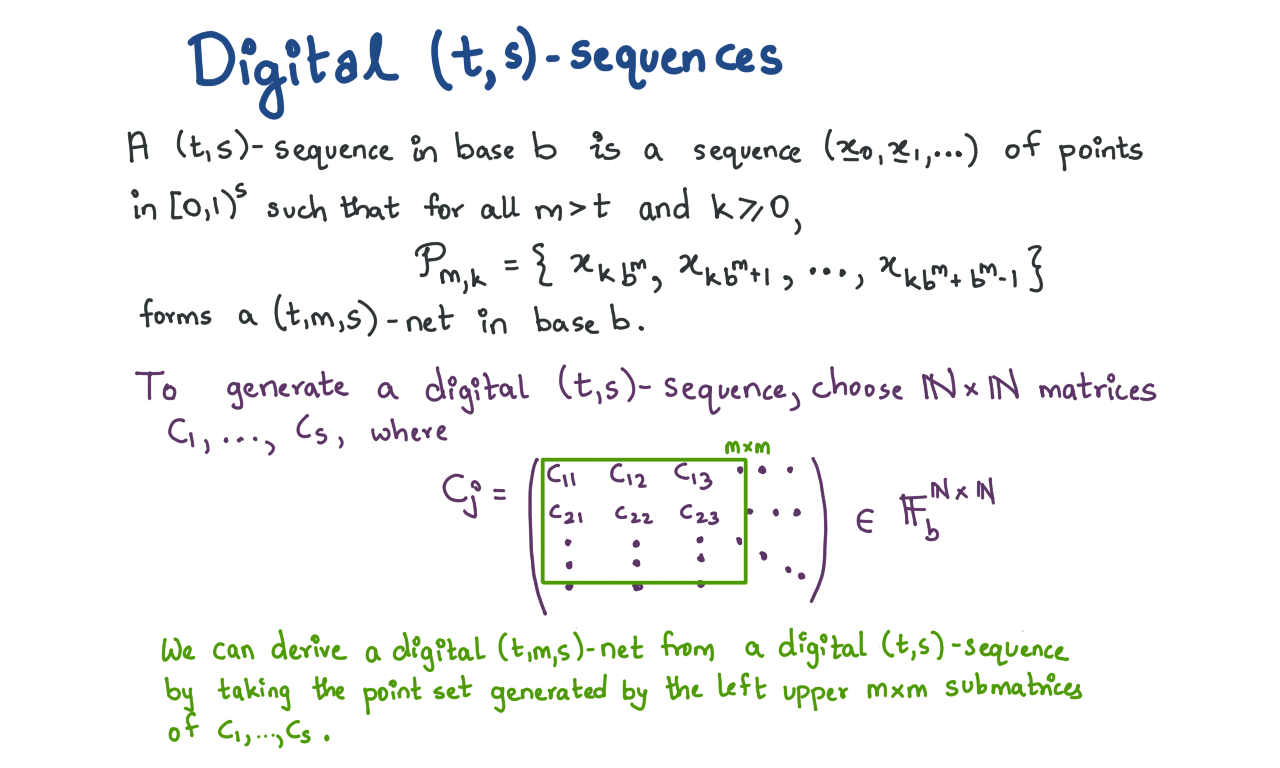 Digital (t,s)-sequences
A (t,s)-sequence in base b is a sequence (x̲₀, x̲₁,...) of points
in [0,1)ˢ such that for all m>t and k⩾0,
𝒫ₘ,ₖ = { x_{kb^m}, x_{kb^m+1}, ..., x_{kb^m+b^m-1} }
forms a (t,m,s)-net in base b.
To generate a digital (t,s)-sequence, choose ℕ×ℕ matrices
C₁, ..., Cₛ, where
m×m
C₁₁ C₁₂ C₁₃ ...
Cⱼ = ( C₂₁ C₂₂ C₂₃ ... ) ∈ 𝔽_b^{ℕ×ℕ}
⋮ ⋮ ⋮ ⋱
We can derive a digital (t,m,s)-net from a digital (t,s)-sequence
by taking the point set generated by the left upper m×m submatrices
of C₁,...,Cₛ.